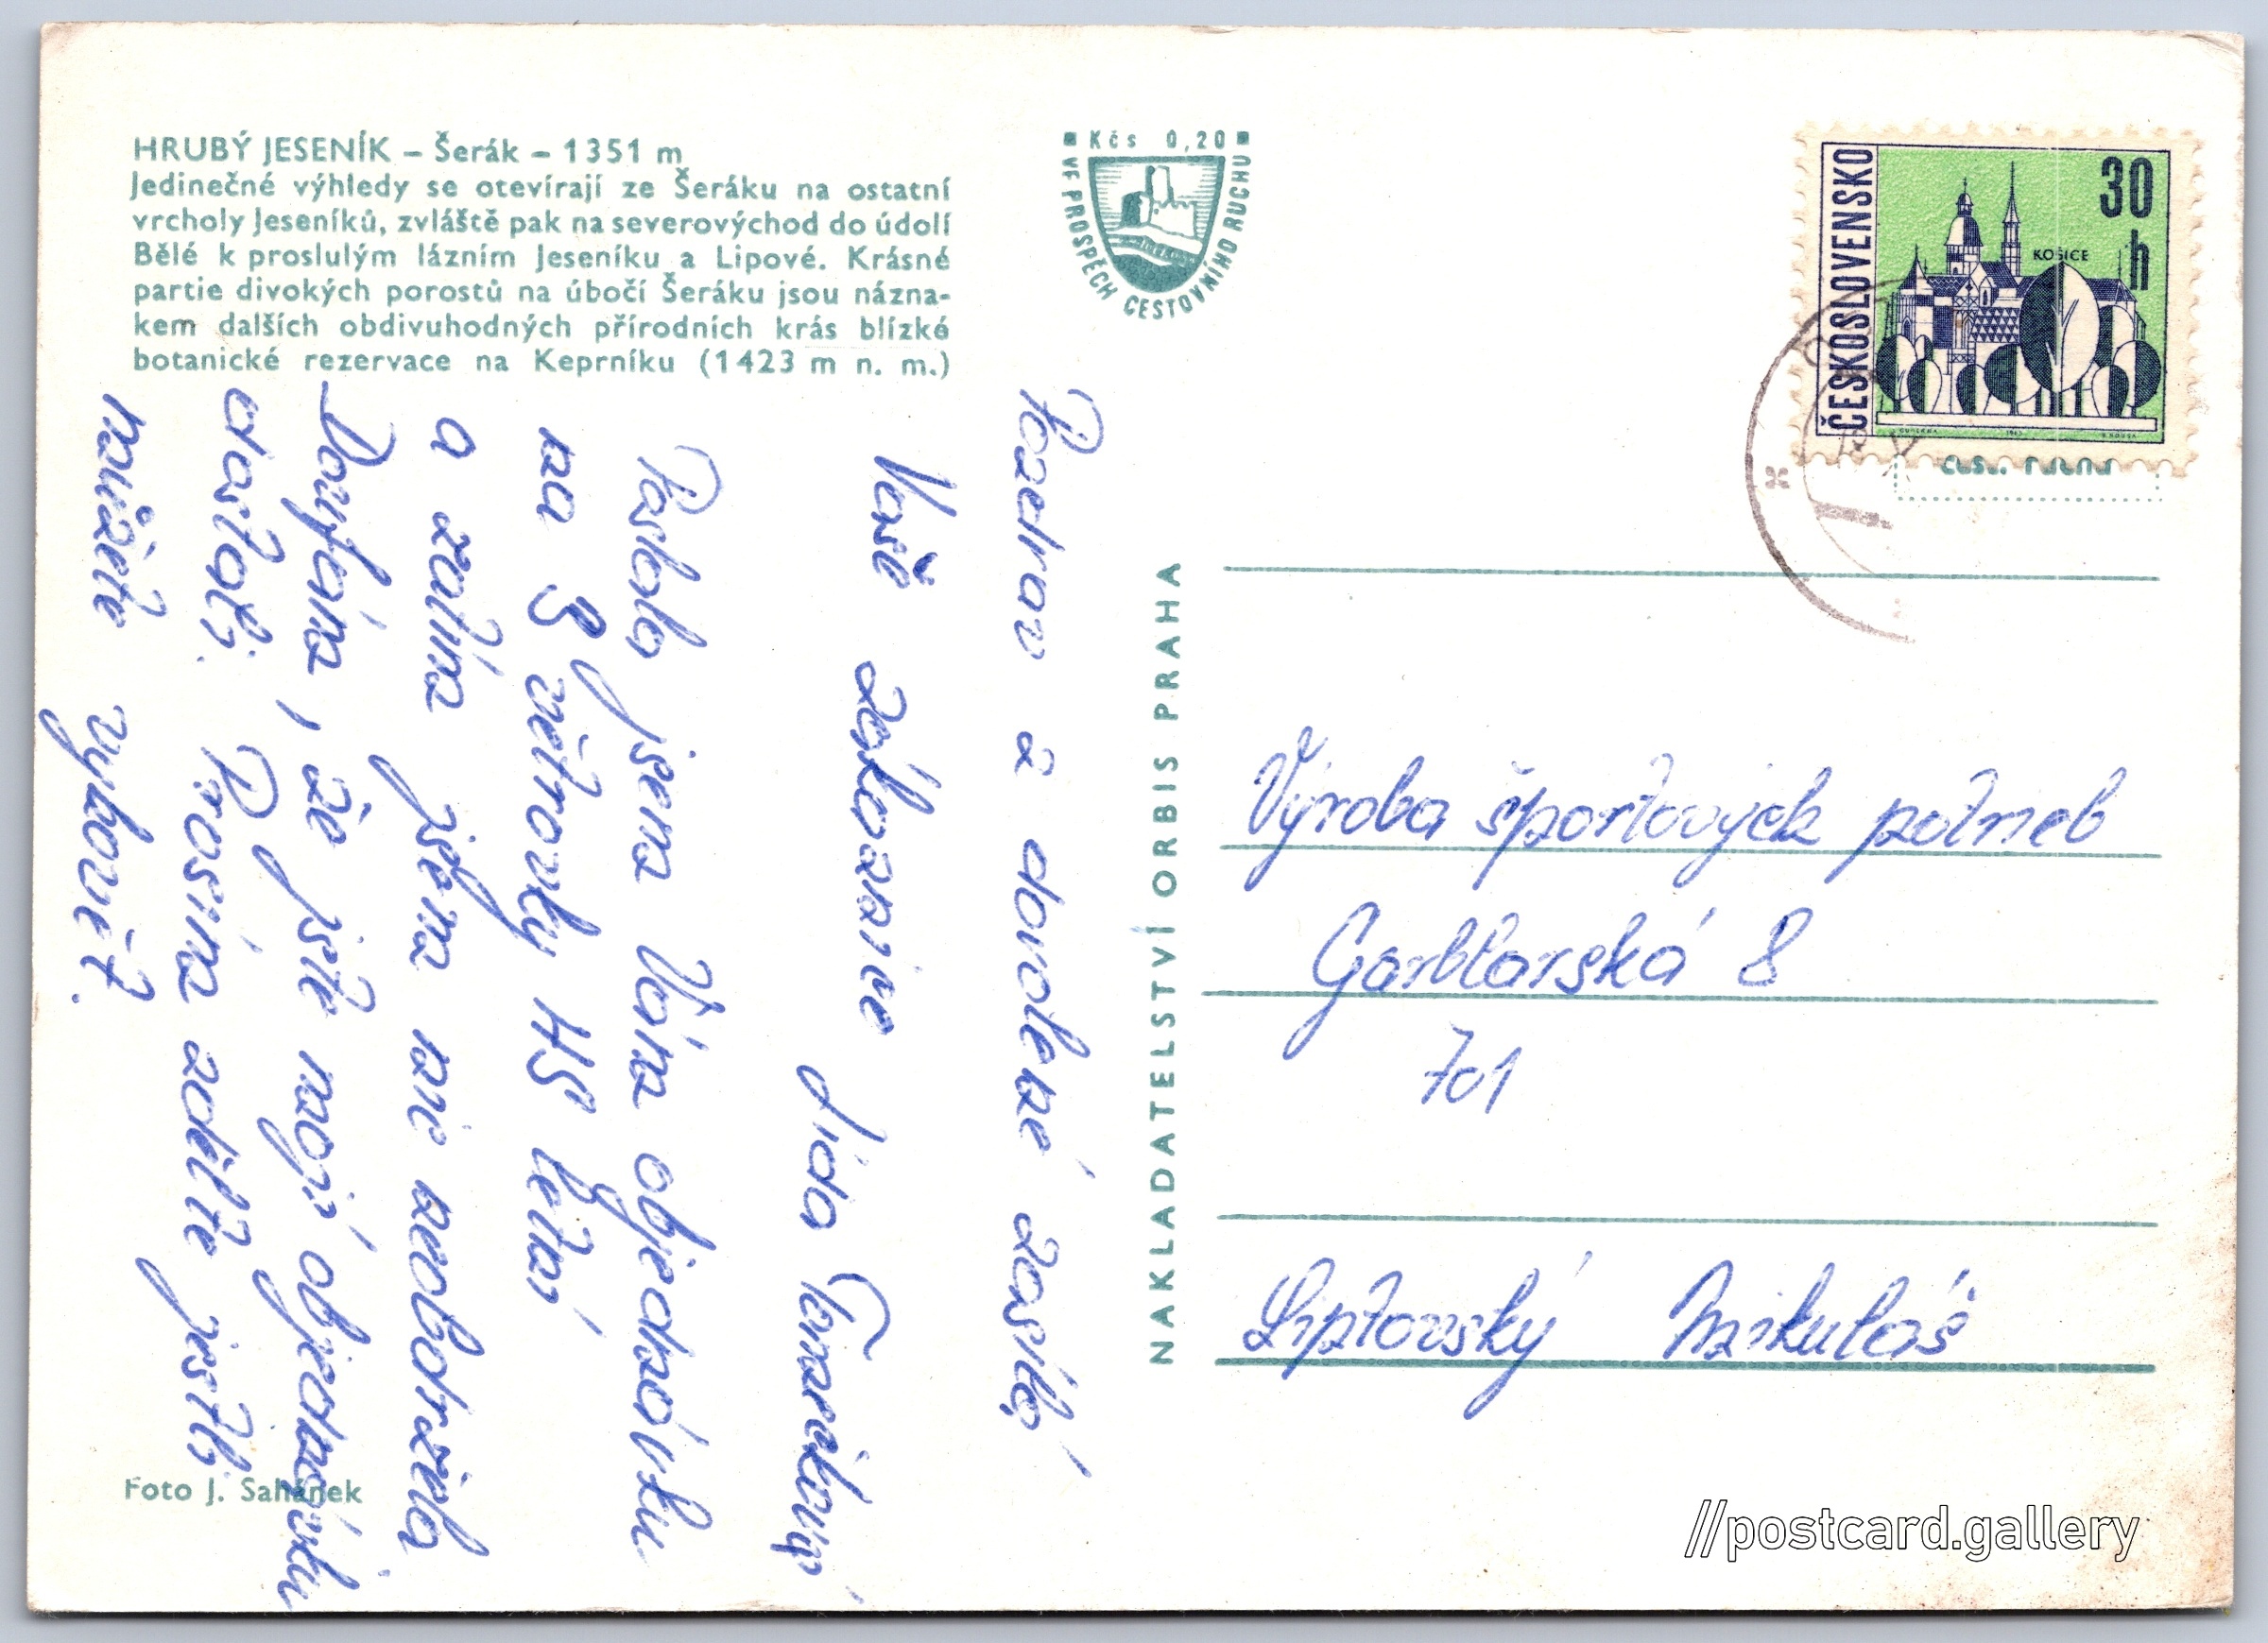 HRUBÝ JESENÍK – Šerák – 1351 m
Jedinečné výhledy se otevírají ze Šeráku na ostatní
vrcholy Jeseníků, zvláště pak na severovýchod do údolí
Bělé k proslulým lázním Jeseníku a Lipové. Krásné
partie divokých porostů na úbočí Šeráku jsou názna-
kem dalších obdivuhodných přírodních krás blízké
botanické rezervace na Keprníku (1423 m n. m.)
Kčs 0,20
VE PROSPĚCH CESTOVNÍHO RUCHU
ČESKOSLOVENSKO
30
h
KOŠICE
Pozdrav z dovolené zasílá
Vaše zákaznice
Jída
Poslala jsem Vám objednávku
na větrovky HS letní
a zatím jsem nic neobdržela
Doufám, že jste moji objednávku
dostali. Prosím sdělte jestli
můžete vyhovět.
Foto J. Sahánek
NAKLADATELSTVÍ ORBIS PRAHA
Výroba športových potrieb
Garbiarská 8
701
Liptovský Mikuláš
//postcard.gallery